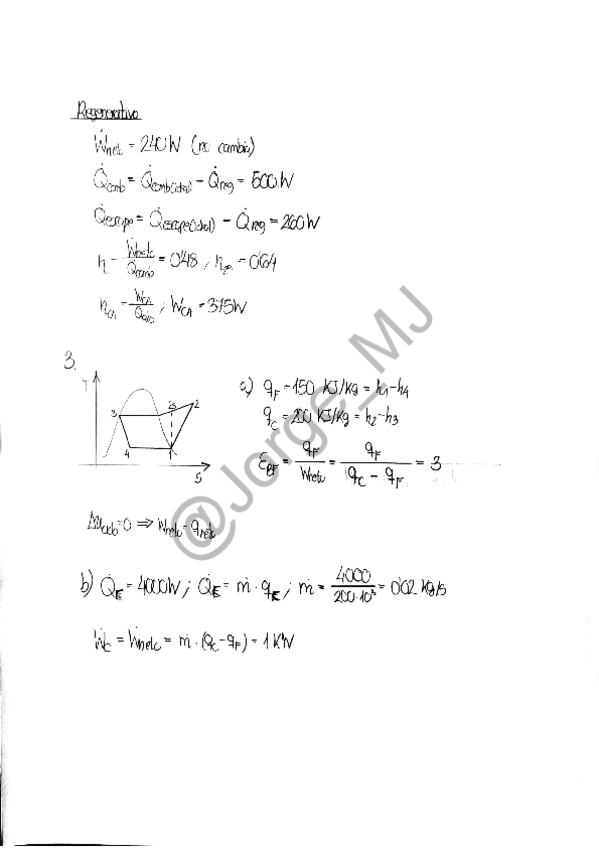 Regenerativo
Ẇnetc = 240W (no cambia)
Q̇comb = Q̇comb(ideal) - Q̇reg = 500W
Q̇escape = Q̇escape(ideal) - Q̇reg = 260W
η = Ẇnetc / Q̇comb = 0'48 ;
= 0'64
; WCA = 375W
3.
T
3
2s
2
4
1
S
a) qF = 150 KJ/kg = h1-h4
qC = 200 KJ/kg = h2-h3
εBF = qF / Wnetc = qF / (qC - qF) = 3
Δuciclo=0 ⟹ Wnetc = qnetc
b) Q̇E = 4000W ; Q̇E = ṁ · qE ; ṁ = 4000 / 200·10³ = 0'02 kg/s
Ẇc = Ẇnetc = ṁ · (qC - qF) = 1 KW
@Jorge_MJ